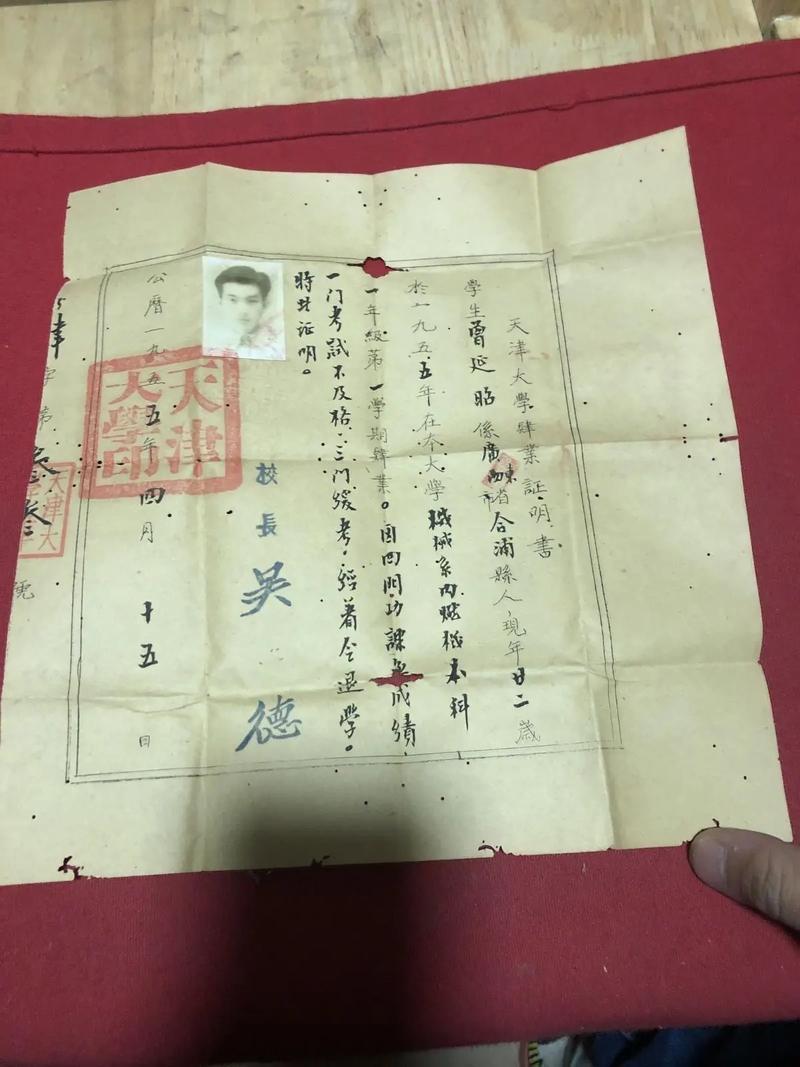 天津大學肄業証明書
學生曾延昭係廣東省合浦縣人，現年廿二歲
於一九五五年在本大學機械系內燃機本科
一年級第一學期肄業。因四門功課無成績，
一门考試不及格，三门缓考，經着令退學。
特此证明。
校長 吳 德
公曆一九五五年四月 十五 日
字第
號
天津大學印
天津大